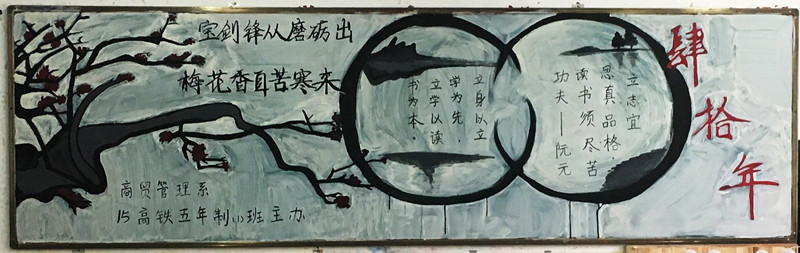 宝剑锋从磨砺出
梅花香自苦寒来
立身以立
学为先，
立学以读
书为本。
立志宜
思真品格，
读书须尽苦
功夫——阮元
肆拾年
商贸管理系
15高铁五年制(1)班主办